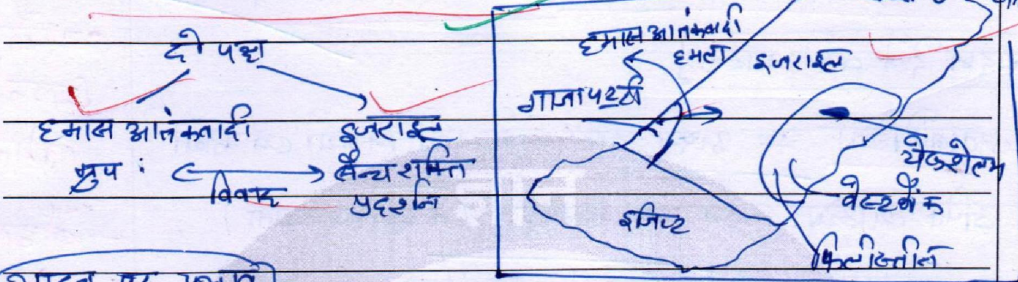 दो पक्ष
हमास आतंकवादी
ग्रुप :
विवाद
इजराइल
सैन्य शक्ति
प्रदर्शन
हमास आतंकवादी
हमला
इजराइल
गाजापट्टी
येरुशेलम
वेस्टबैंक
इजिप्ट
फिलीस्तीन